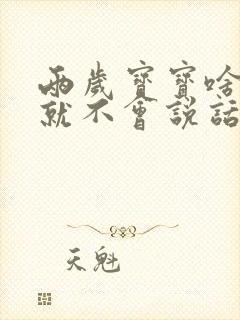 兩歲寶寶啥
就不會說話
天魁